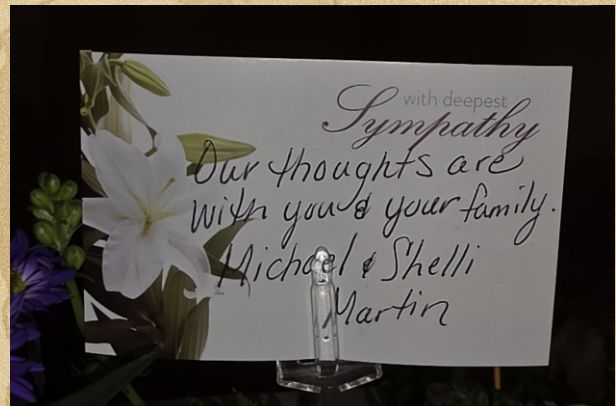 with deepest
Sympathy
Our thoughts are
with you & your family.
Michael & Shelli
Martin